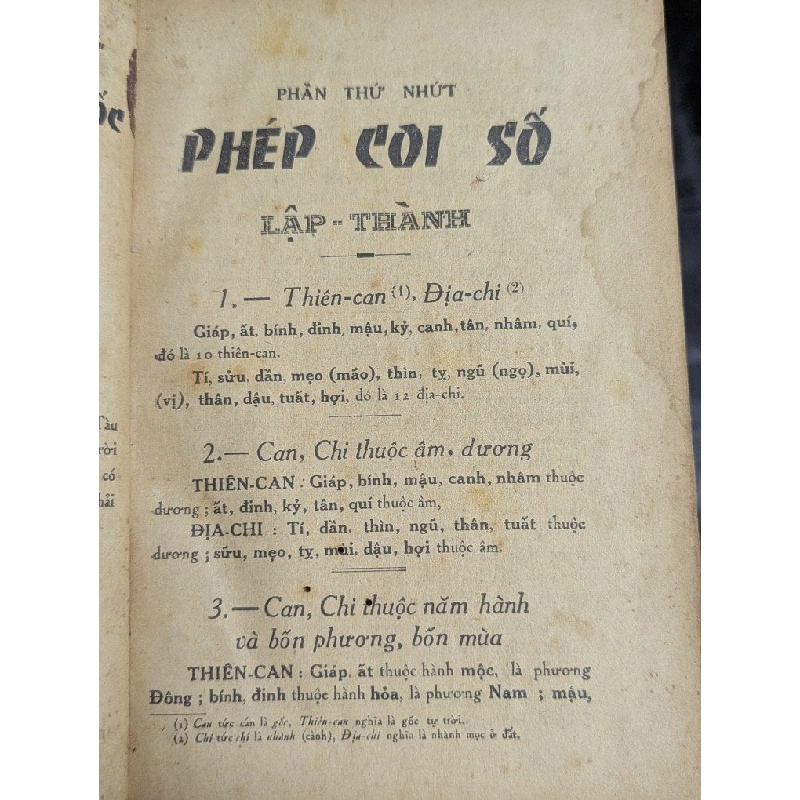 ốc
PHẦN THỨ NHỨT
PHÉP COI SỐ
LẬP-THÀNH
1.— Thiên-can (1), Địa-chi (2)
Giáp, ất, bính, đinh, mậu, kỷ, canh, tân, nhâm, quí,
đó là 10 thiên-can.
Tí, sửu, dần, mẹo (mão), thìn, tỵ, ngũ (ngọ), mùi,
(vị), thân, dậu, tuất, hợi, đó là 12 địa-chi.
2.— Can, Chi thuộc âm, dương
THIÊN-CAN : Giáp, bính, mậu, canh, nhâm thuộc
dương ; ất, đinh, kỷ, tân, quí thuộc âm,
ĐỊA-CHI : Tí, dần, thìn, ngũ, thân, tuất thuộc
dương ; sữu, mẹo, tỵ, mùi, dậu, hợi thuộc âm.
3.— Can, Chi thuộc năm hành
và bốn phương, bốn mùa
THIÊN-CAN : Giáp, ất thuộc hành mộc, là phương
Đông ; bính, đinh thuộc hành hỏa, là phương Nam ; mậu,
(1) Can tức căn là gốc, Thiên-can nghĩa là gốc tự trời.
(2) Chi tức chi là nhành (cành), Địa-chi nghĩa là nhành mọc ở đất.
Tàu
có